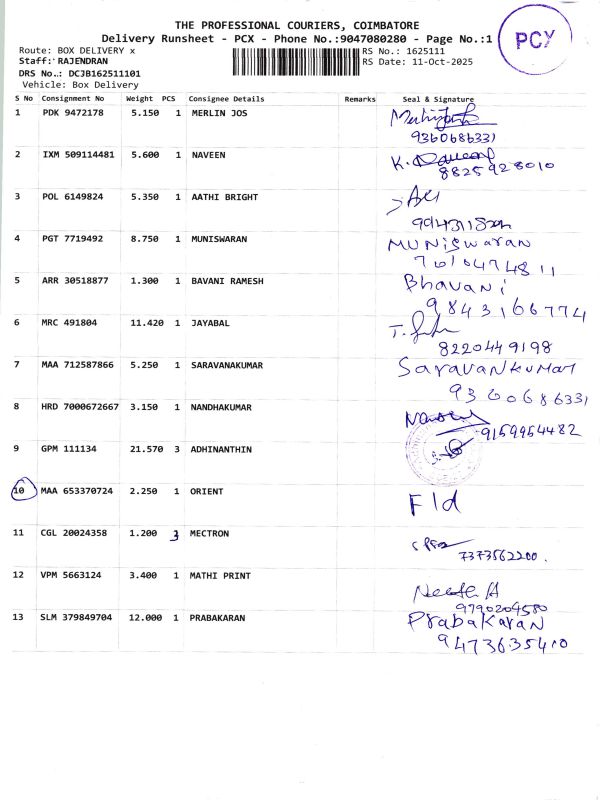 THE PROFESSIONAL COURIERS, COIMBATORE
Delivery Runsheet - PCX - Phone No.:9047080280 - Page No.:1
PCX
Route: BOX DELIVERY x
RS No.: 1625111
Staff: RAJENDRAN
RS Date: 11-Oct-2025
DRS No.: DCJB162511101
Vehicle: Box Delivery
S No Consignment No Weight PCS Consignee Details Remarks Seal & Signature
1 PDK 9472178 5.150 1 MERLIN JOS
9360686331
2 IXM 509114481 5.600 1 NAVEEN K.
8825928010
3 POL 6149824 5.350 1 AATHI BRIGHT
4 PGT 7719492 8.750 1 MUNISWARAN MUNiSwaran
7010474811
5 ARR 30518877 1.300 1 BAVANI RAMESH Bhavani
9843166774
6 MRC 491804 11.420 1 JAYABAL T.
8220449198
7 MAA 712587866 5.250 1 SARAVANAKUMAR Saravankumar
9360686331
8 HRD 7000672667 3.150 1 NANDHAKUMAR
9159954482
9 GPM 111134 21.570 3 ADHINANTHIN
10 MAA 653370724 2.250 1 ORIENT F/d
11 CGL 20024358 1.200 3 MECTRON
7373562200.
12 VPM 5663124 3.400 1 MATHI PRINT
9790204580
13 SLM 379849704 12.000 1 PRABAKARAN Prabakaran
9473635410